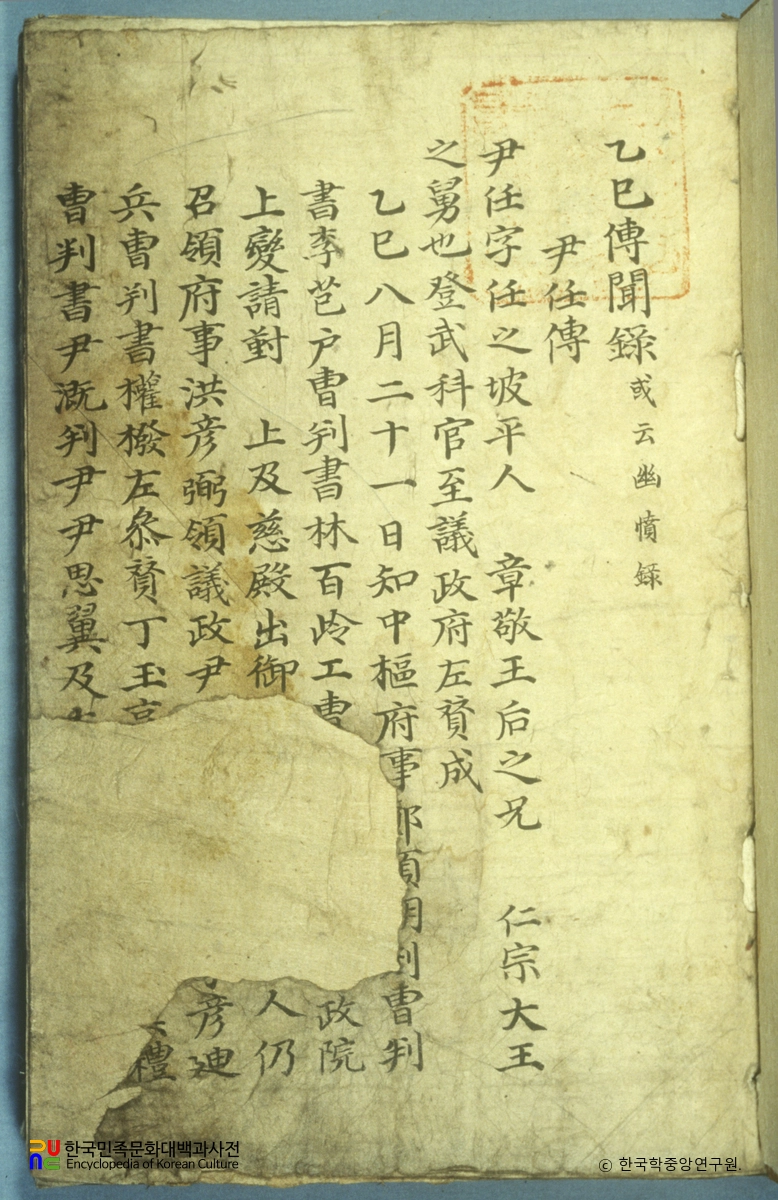 乙巳傳聞錄 或云幽憤錄
尹任傳
尹任字任之坡平人 章敬王后之兄 仁宗大王
之舅也登武科官至議政府左贊成
乙巳八月二十一日知中樞府事鄭順朋刑曹判
書李芑戶曹判書林百岭工曹 政院
上變請對 上及慈殿出御 人仍
召領府事洪彦弼領議政尹 彦迪
兵曹判書權橃左叅賛丁玉亨 禮
曹判書尹漑判尹尹思翼及
한국민족문화대백과사전
Encyclopedia of Korean Culture
ⓒ 한국학중앙연구원.